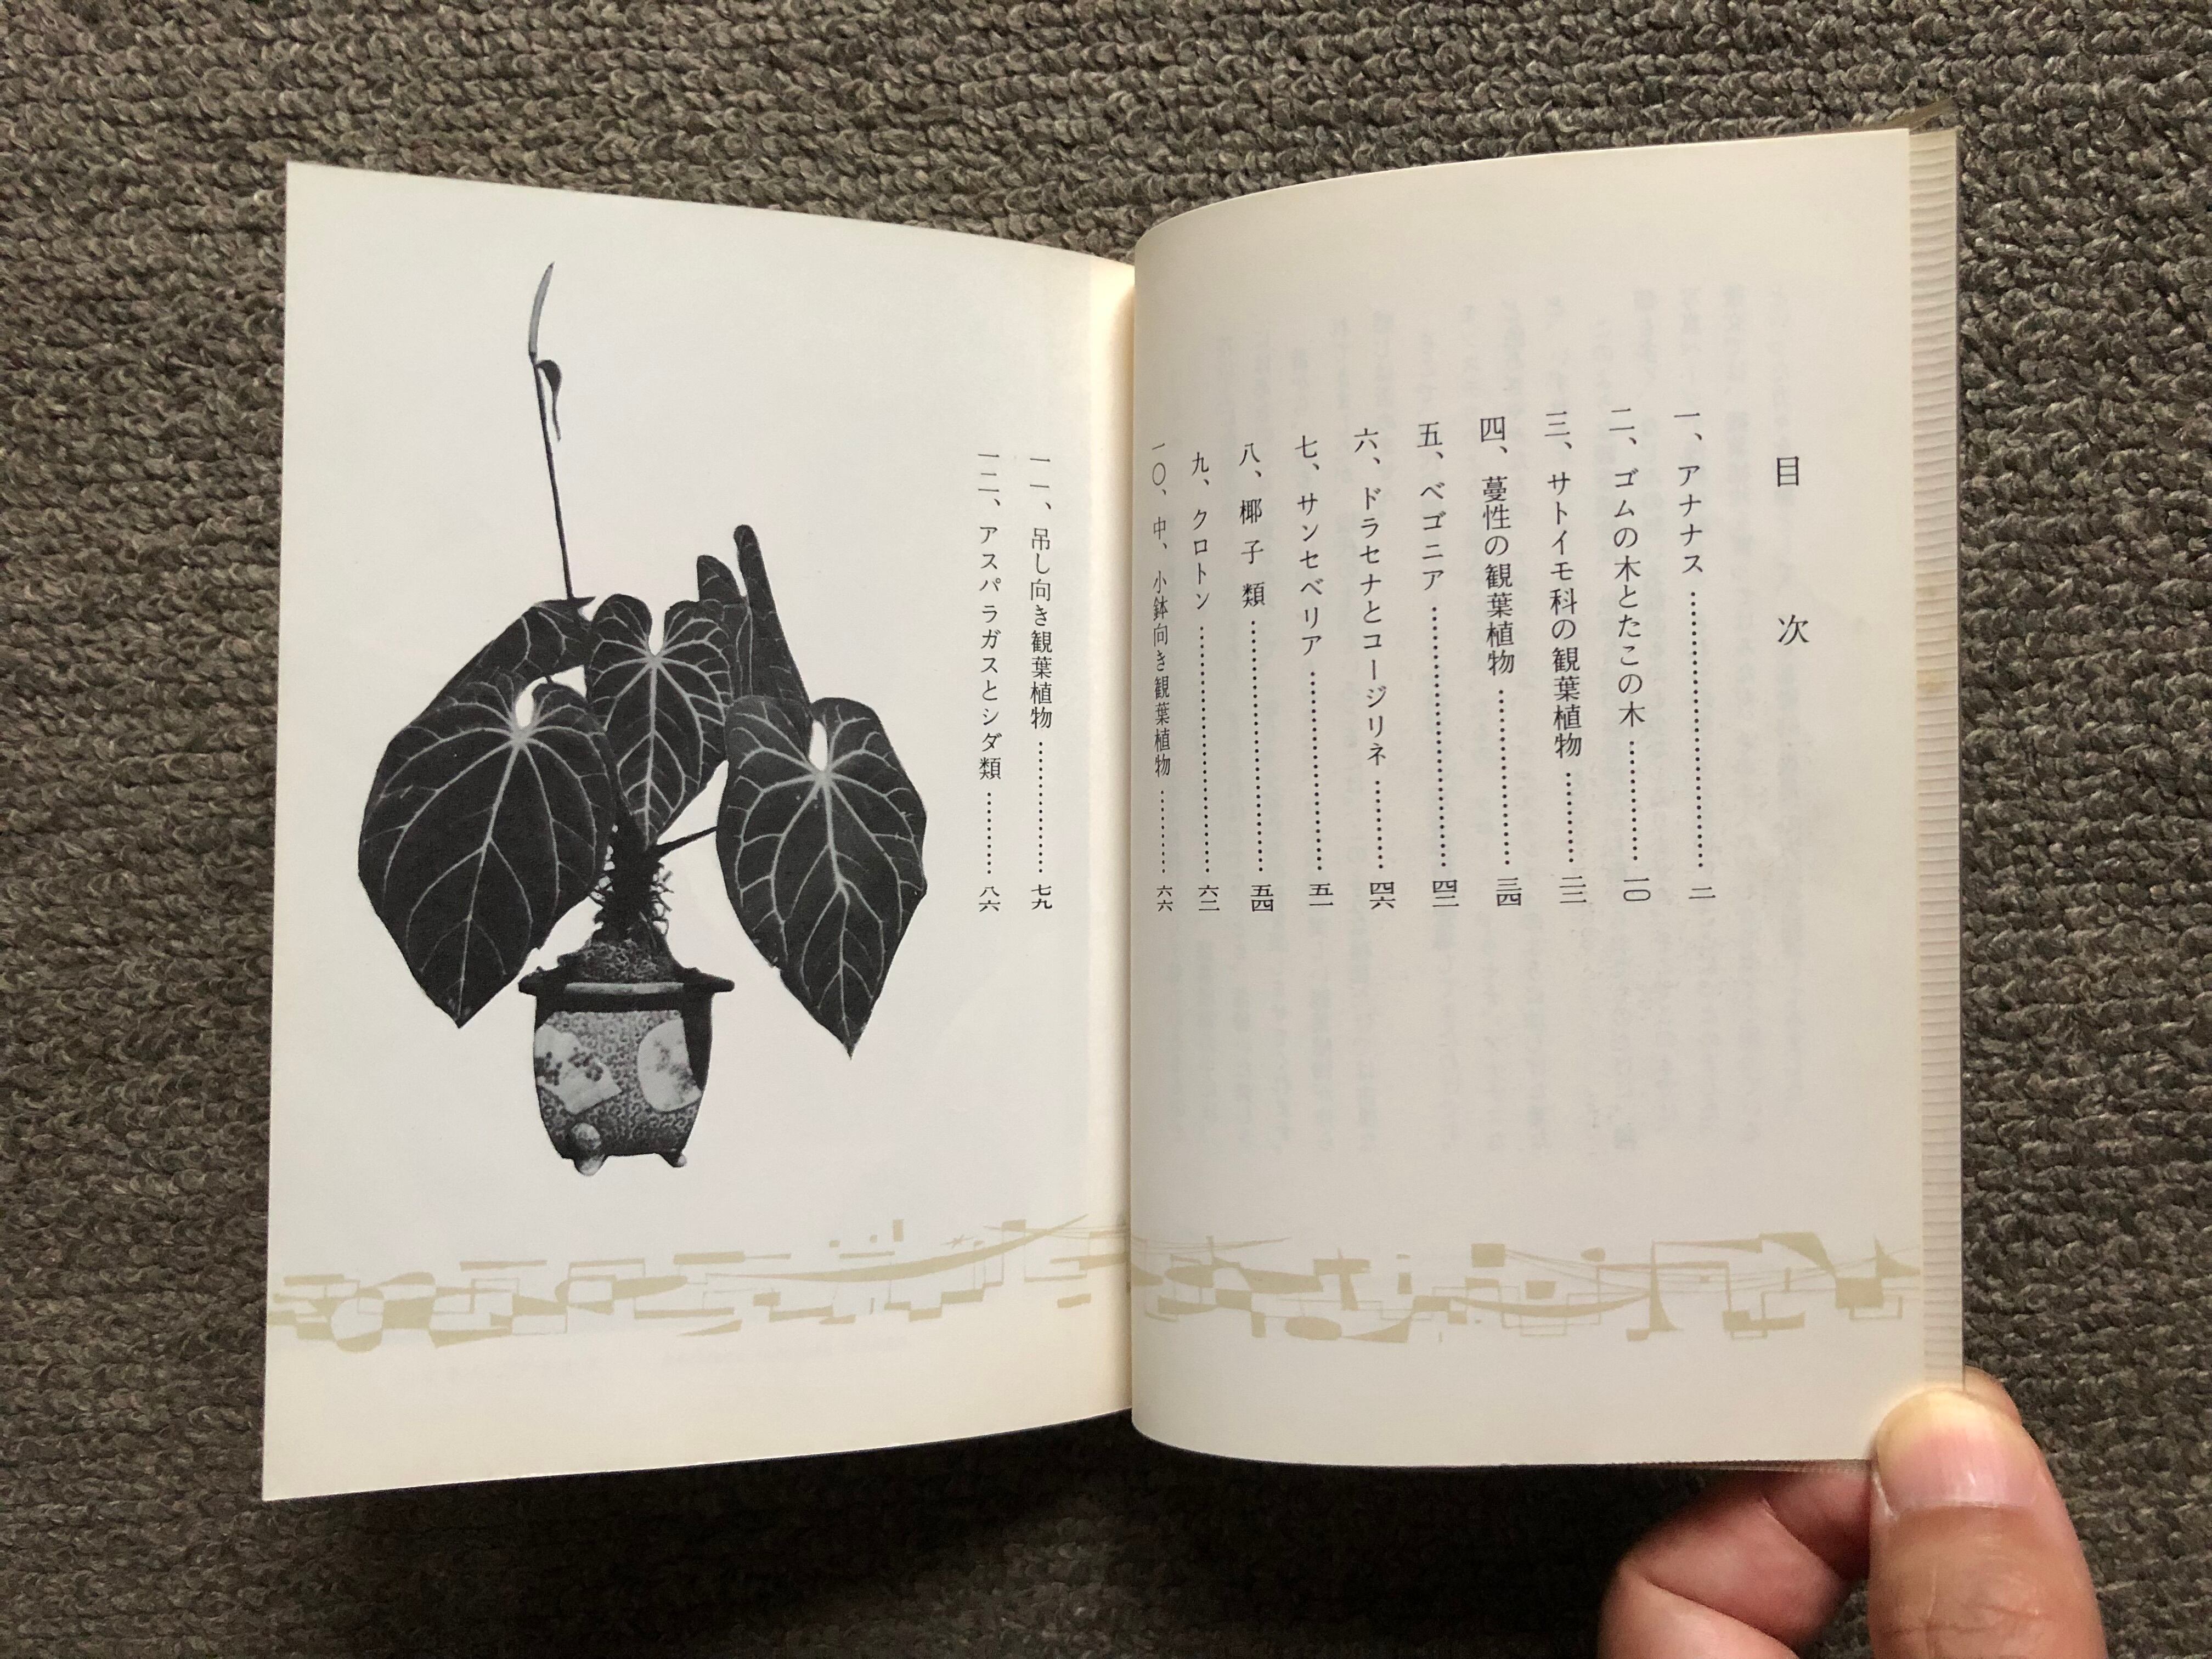 目次
一、アナナス……………………二
二、ゴムの木とたこの木…………一〇
三、サトイモ科の観葉植物………二二
四、蔓性の観葉植物………………三四
五、ベゴニア………………………四二
六、ドラセナとコージリネ………四六
七、サンセベリア…………………五一
八、椰子類…………………………五四
九、クロトン………………………六二
一〇、中、小鉢向き観葉植物………六六
一一、吊し向き観葉植物……………七九
一二、アスパラガスとシダ類………八六